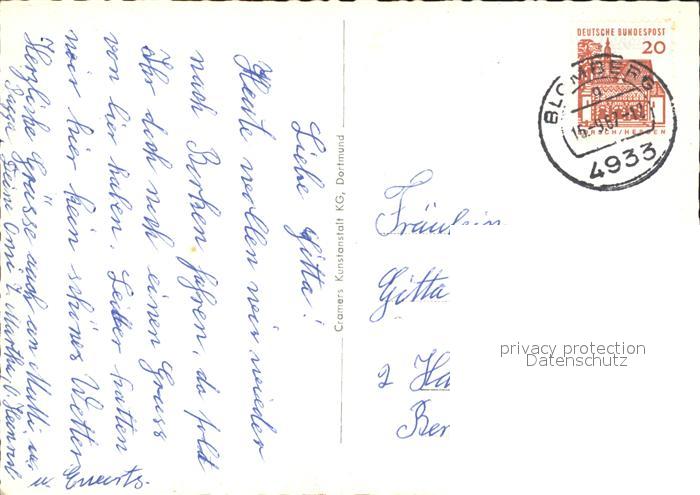 Liebe Gitta!
Heute wollen wir wieder
nach Borken fahren, da folgt
Ihr doch noch einen Gruss
von hier haben. Leider hatten
wir hier kein schönes Wetter
Herzliche Grüsse auch an Mutti u.
Deine Omi T. Martha O. Heinrich
u. Everts.
Cramers Kunstanstalt KG, Dortmund
DEUTSCHE BUNDESPOST
20
LORSCH/HESSEN
BLOMBERG
4933
Fräulein
Gitta
2 Ha
Ber
privacy protection
Datenschutz